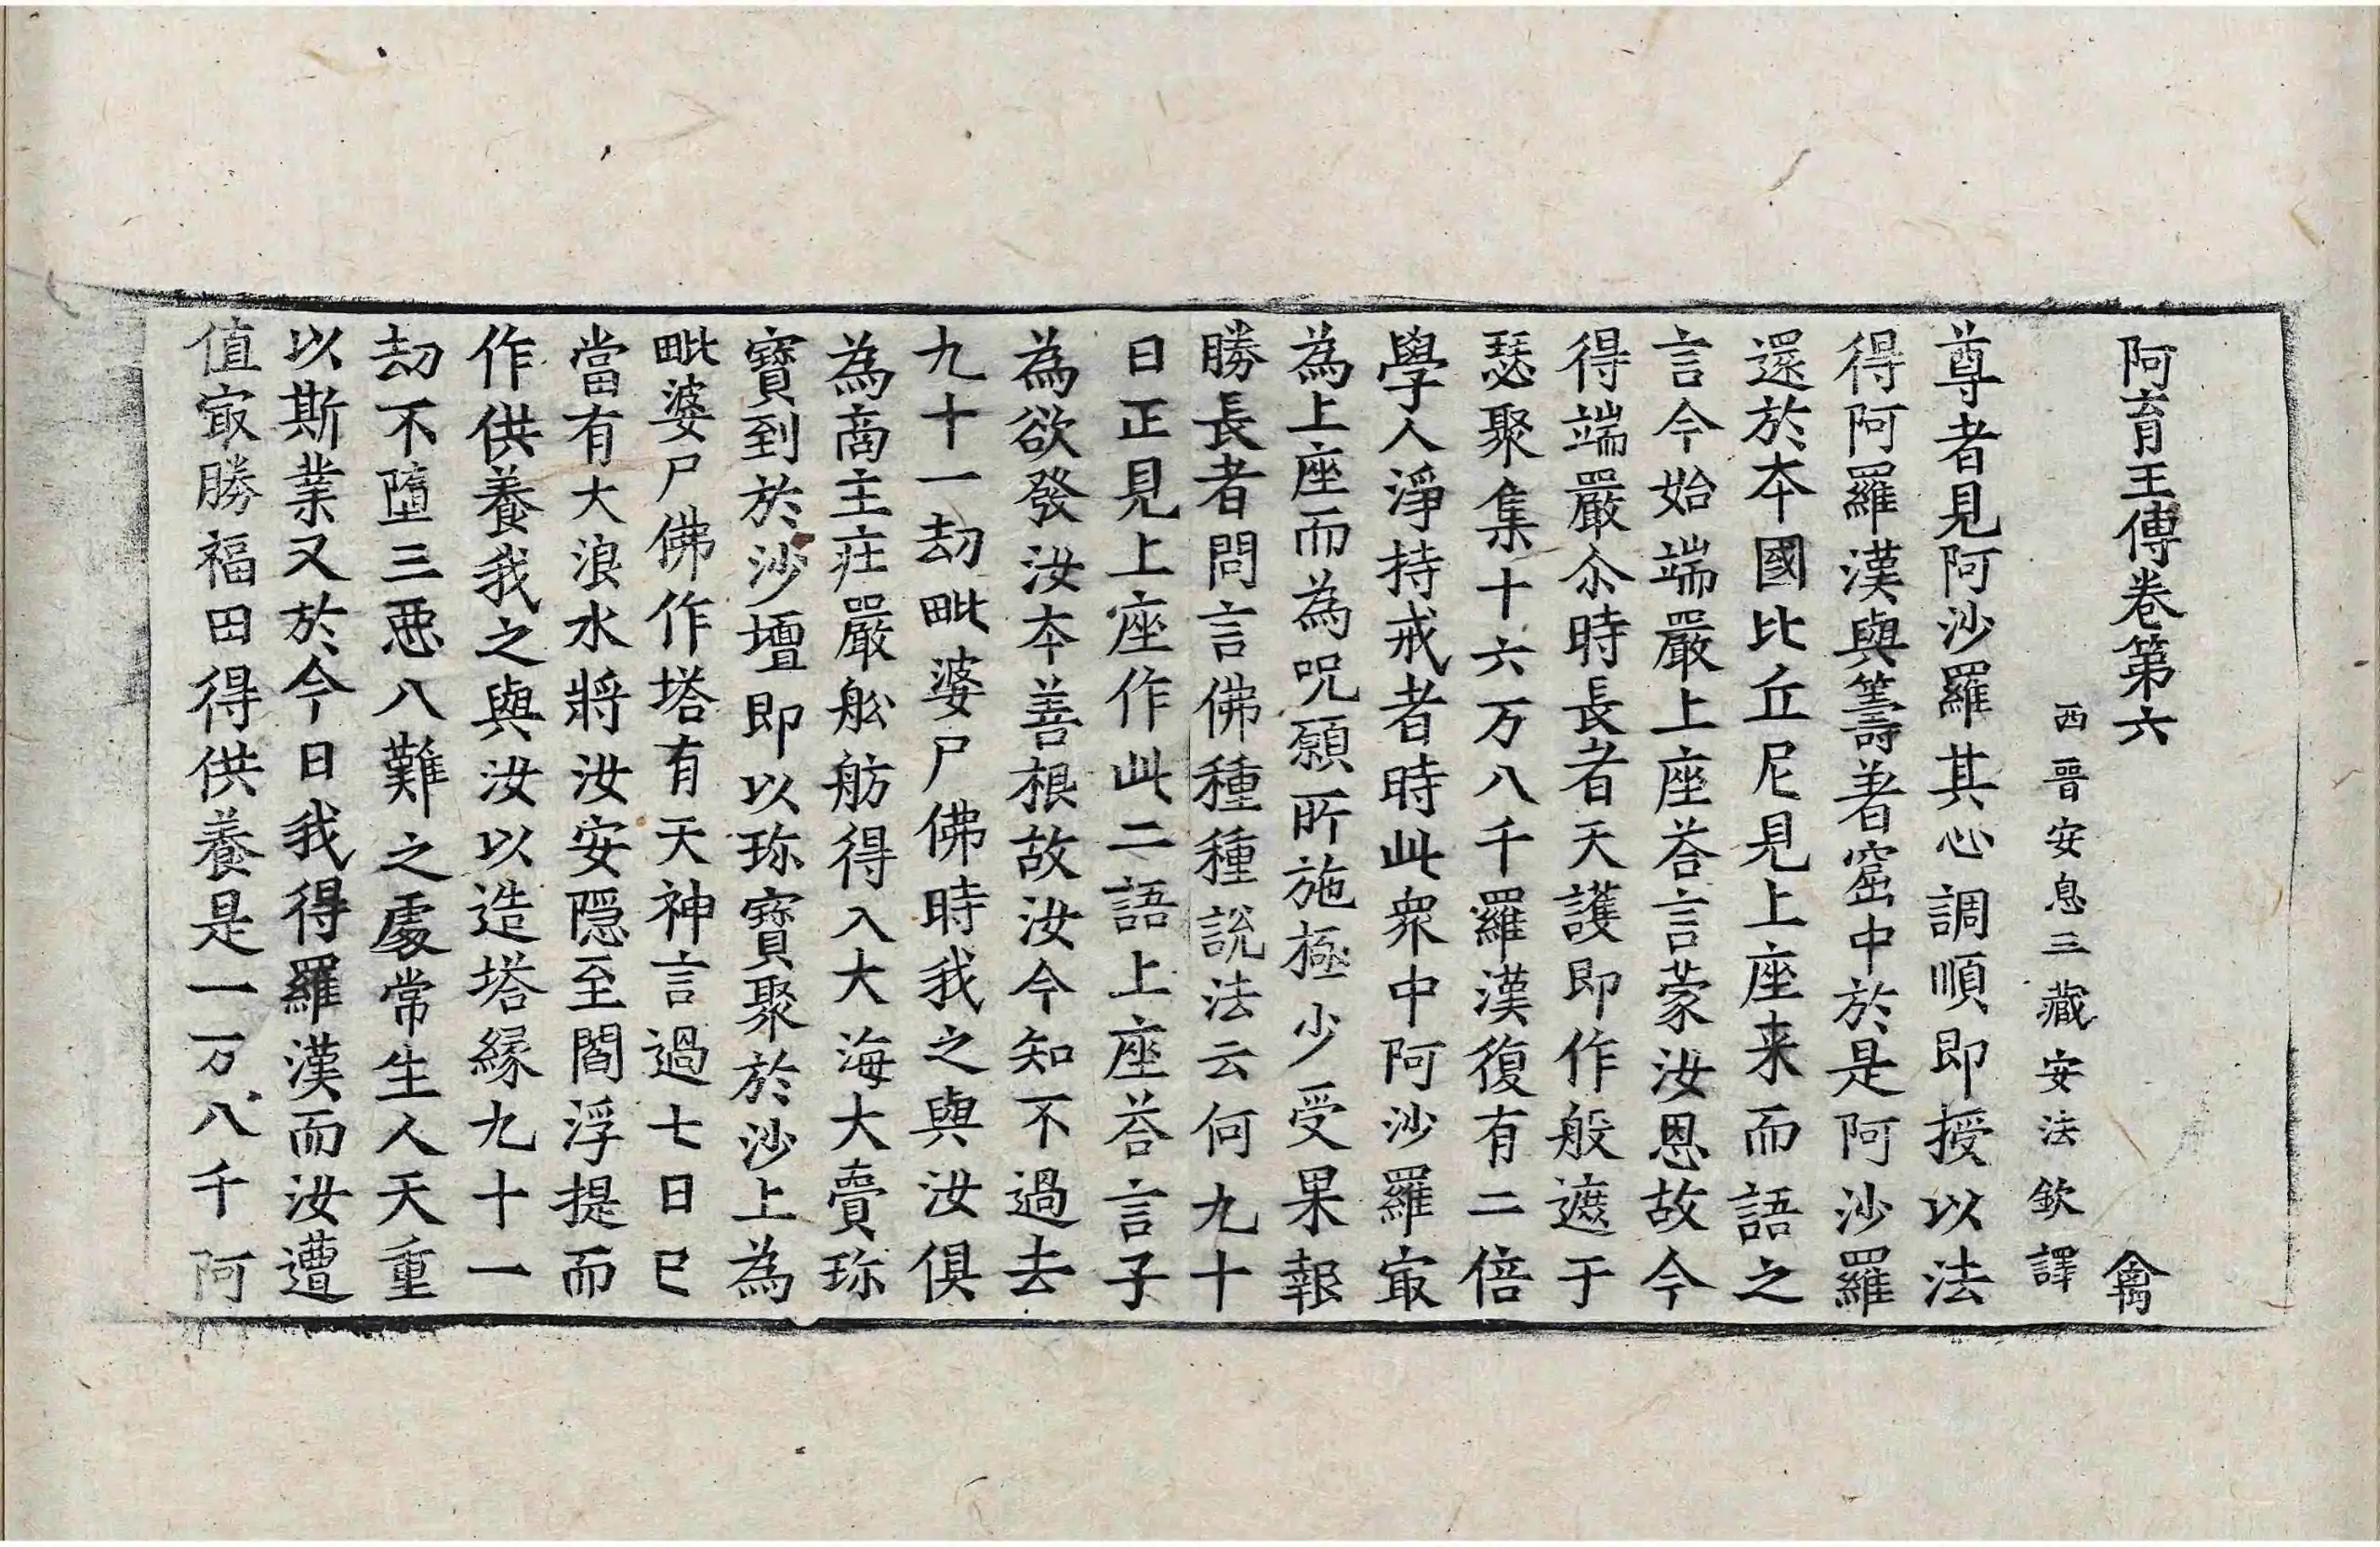 阿育王傳卷第六 禽
西晉安息三藏安法欽譯
尊者見阿沙羅其心調順即授以法
得阿羅漢與籌著窟中於是阿沙羅
還於本國比丘尼見上座来而語之
言今始端嚴上座荅言蒙汝恩故今
得端嚴尒時長者天護即作般遮于
瑟聚集十六万八千羅漢復有二倍
學人淨持戒者時此衆中阿沙羅㝡
為上座而為呪願所施極少受果報
勝長者問言佛種種説法云何九十
日正見上座作此二語上座荅言子
為欲發汝本善根故汝今知不過去
九十一劫毗婆尸佛時我之與汝俱
為商主莊嚴舩舫得入大海大賣珎
寶到於沙壇即以珎寶聚於沙上為
毗婆尸佛作塔有天神言過七日已
當有大浪水將汝安隱至閻浮提而
作供養我之與汝以造塔緣九十一
劫不墮三惡八難之處常生人天重
以斯業又於今日我得羅漢而汝遭
值㝡勝福田得供養是一万八千阿